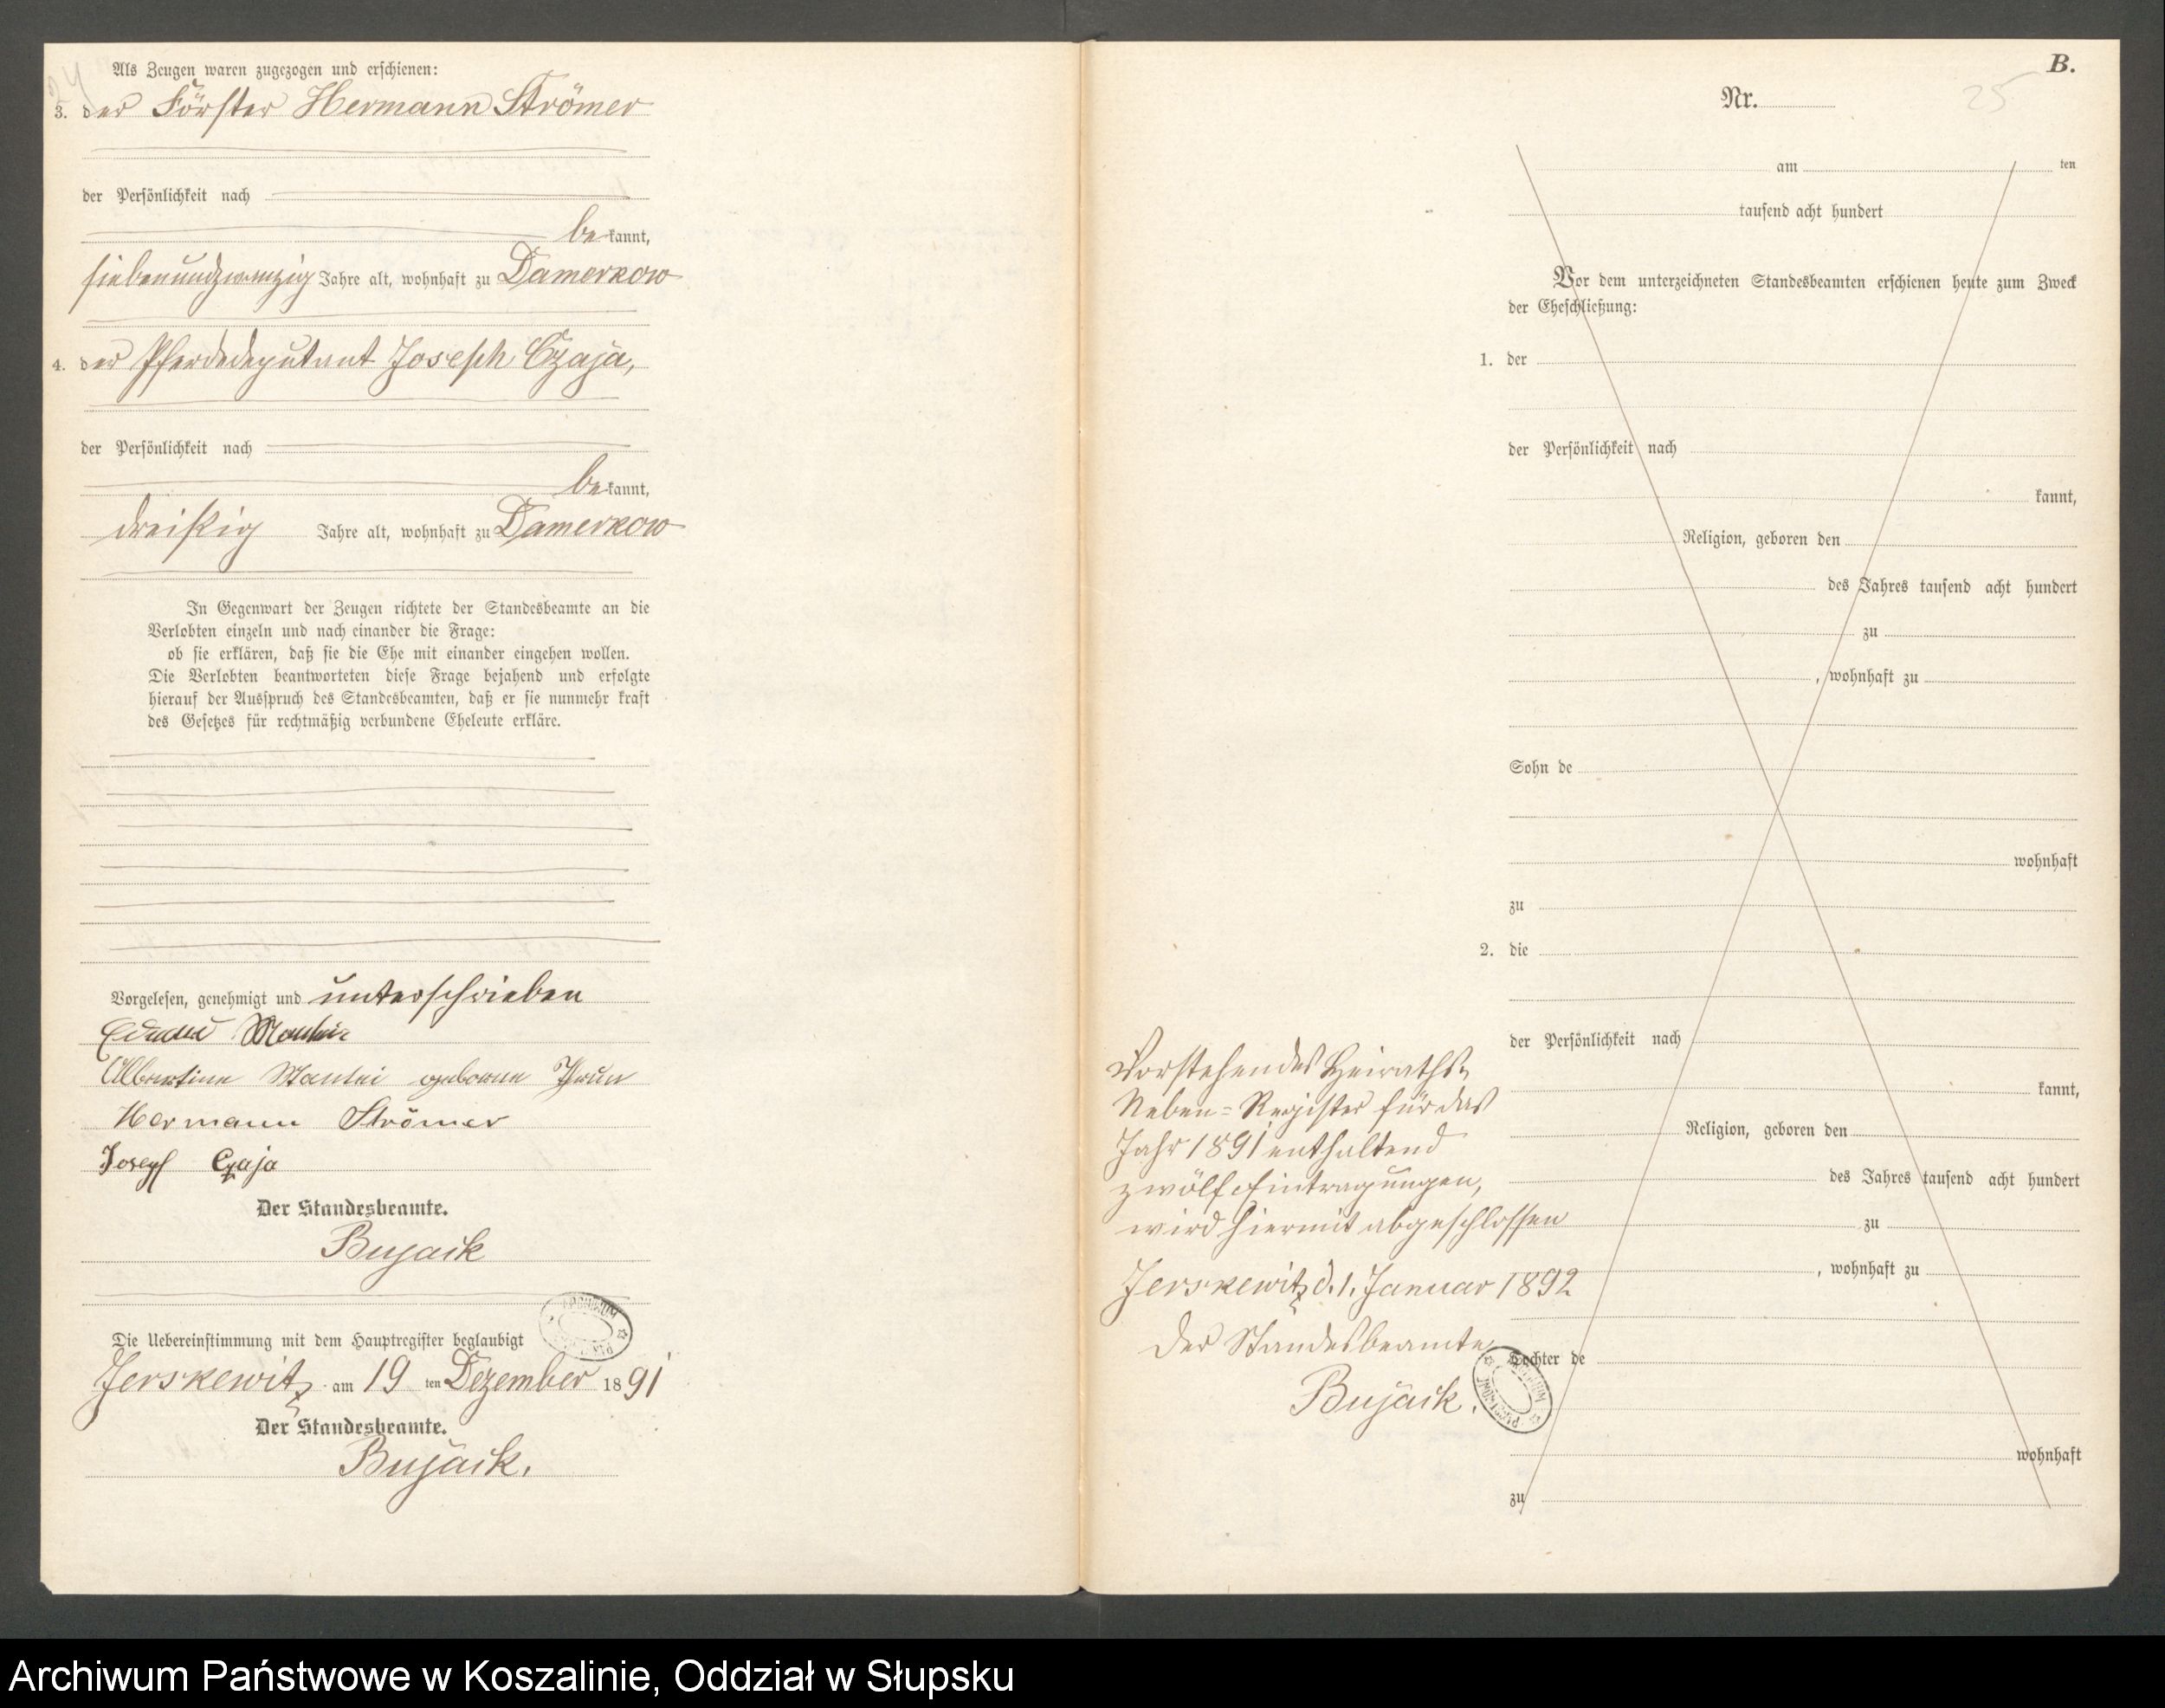 24
Als Zeugen waren zugezogen und erschienen:
3. der Förster Hermann Strömer
der Persönlichkeit nach
be kannt,
siebenundzwanzig Jahre alt, wohnhaft zu Damerkow
4. der Pferdedeputant Joseph Czaja,
der Persönlichkeit nach
be kannt,
dreißig Jahre alt, wohnhaft zu Damerkow
In Gegenwart der Zeugen richtete der Standesbeamte an die
Verlobten einzeln und nach einander die Frage:
ob sie erklären, daß sie die Ehe mit einander eingehen wollen.
Die Verlobten beantworteten diese Frage bejahend und erfolgte
hierauf der Ausspruch des Standesbeamten, daß er sie nunmehr kraft
des Gesetzes für rechtmäßig verbundene Eheleute erkläre.
Vorgelesen, genehmigt und unterschrieben
Albertine Mantei geborene
Hermann Strömer
Joseph Czaja
Der Standesbeamte.
Bujack
Die Uebereinstimmung mit dem Hauptregister beglaubigt
Jerskewitz am 19 ten Dezember 1891
Der Standesbeamte.
Bujack.
B.
25
Nr.
am ten
tausend acht hundert
Vor dem unterzeichneten Standesbeamten erschienen heute zum Zweck
der Eheschließung:
1. der
der Persönlichkeit nach
kannt,
Religion, geboren den
des Jahres tausend acht hundert
zu
, wohnhaft zu
Sohn de
wohnhaft
zu
2. die
der Persönlichkeit nach
kannt,
Religion, geboren den
des Jahres tausend acht hundert
zu
, wohnhaft zu
Tochter de
wohnhaft
zu
Vorstehendes Heiraths-
Neben-Register für das
Jahr 1891 enthaltend
zwölf Eintragungen,
wird hiermit abgeschlossen
Jerskewitz d. 1. Januar 1892
Der Standesbeamte
Bujack.
Archiwum Państwowe w Koszalinie, Oddział w Słupsku